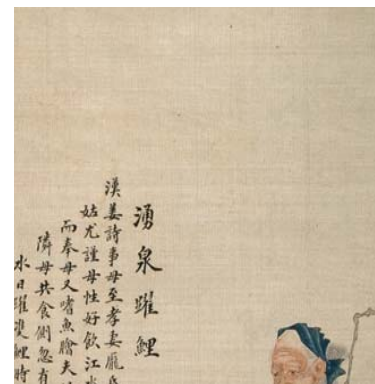 湧泉躍鯉
漢姜詩事母至孝妻龐氏
姑尤謹母性好飲江水
而奉母又嗜魚膾夫
隣母共食側忽有
水日躍雙鯉時